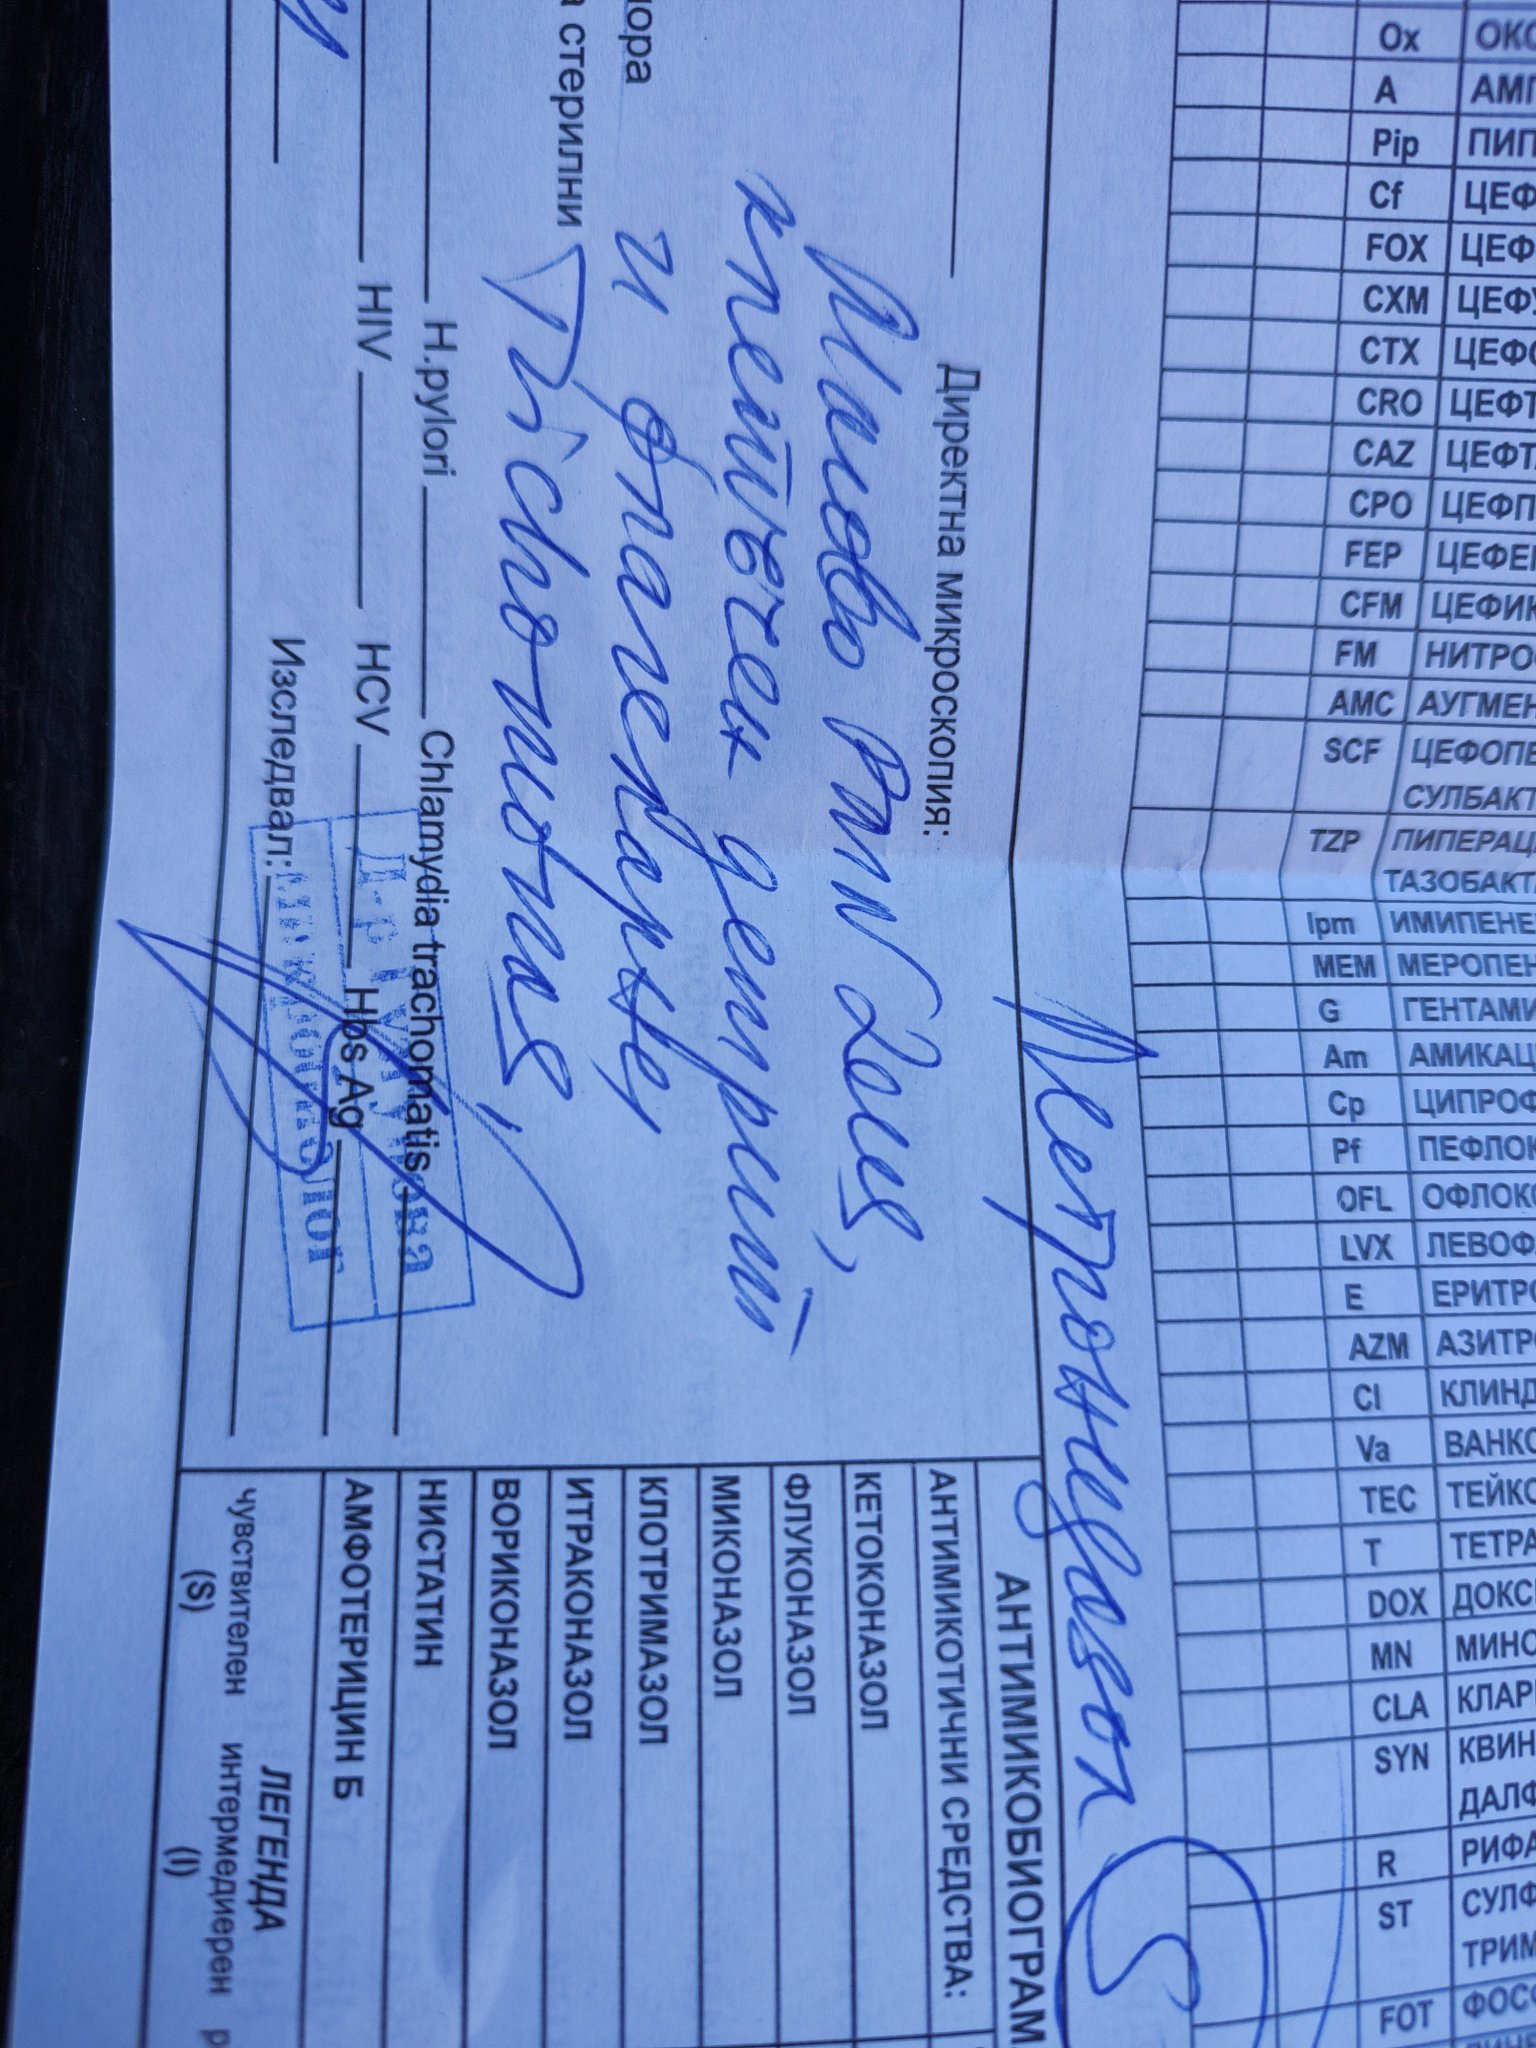 Ox ОКС
A АМП
Pip ПИП
Cf ЦЕФ
FOX ЦЕФ
CXM ЦЕФУ
CTX ЦЕФО
CRO ЦЕФТ
CAZ ЦЕФТ
CPO ЦЕФП
FEP ЦЕФЕ
CFM ЦЕФИ
FM НИТРО
AMC АУГМЕН
SCF ЦЕФОПЕ
СУЛБАКТ
TZP ПИПЕРАЦ
ТАЗОБАКТ
Ipm ИМИПЕНЕ
MEM МЕРОПЕН
G ГЕНТАМИ
Am АМИКАЦ
Cp ЦИПРОФ
Pf ПЕФЛОК
OFL ОФЛОК
LVX ЛЕВОФ
E ЕРИТРО
AZM АЗИТР
Cl КЛИНД
Va ВАНКО
TEC ТЕЙКО
T ТЕТРА
DOX ДОКС
MN МИНО
CLA КЛАР
SYN КВИН
ДАЛФ
R РИФА
ST СУЛФ
ТРИМ
FOT ФОСФ
Метронидазол S
Директна микроскопия:
Малко PMN Leuc,
клетъчен детрит
и флагеларни
Trichomonas,
лора
а стерилни
H.pylori Chlamydia trachomatis
HIV HCV Hbs Ag
Изследвал:
микробиолог
АНТИМИКОБИОГРАМ
АНТИМИКОТИЧНИ СРЕДСТВА:
КЕТОКОНАЗОЛ
ФЛУКОНАЗОЛ
МИКОНАЗОЛ
КЛОТРИМАЗОЛ
ИТРАКОНАЗОЛ
ВОРИКОНАЗОЛ
НИСТАТИН
АМФОТЕРИЦИН Б
ЛЕГЕНДА
чувствителен интермедиерен р
(S) (I)